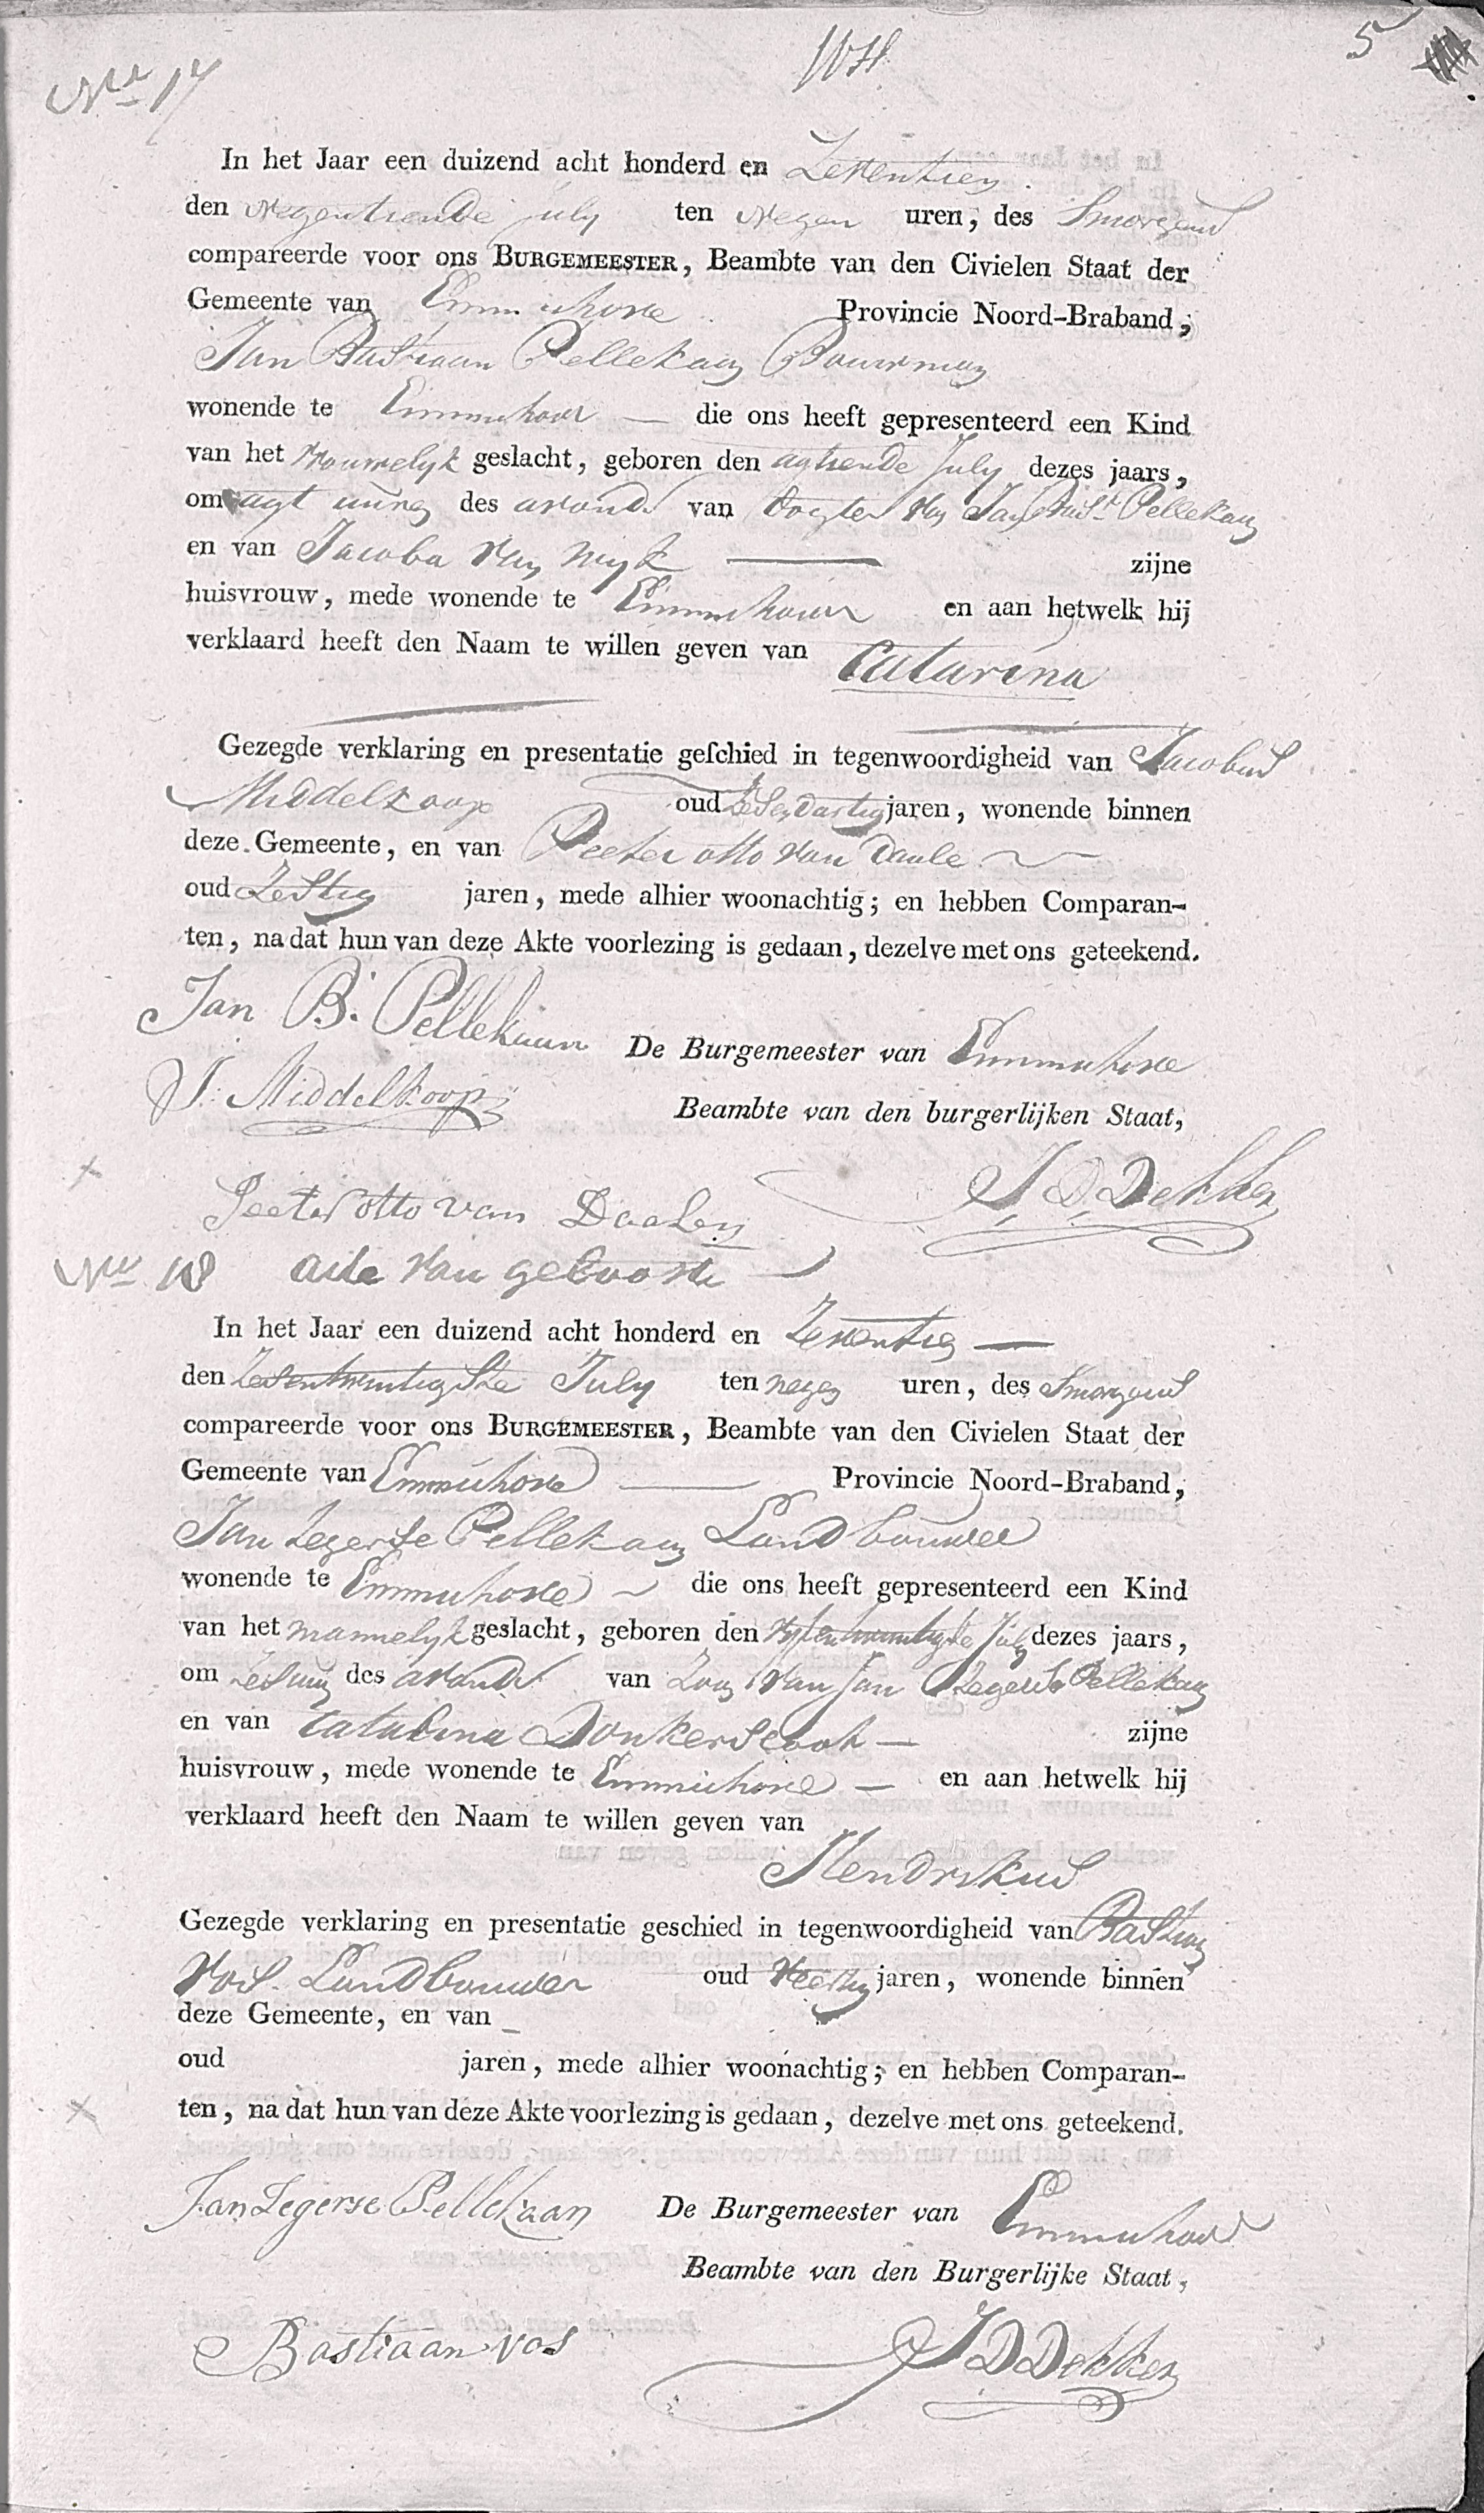 5
No 17
In het Jaar een duizend acht honderd en Zeventien
den Negentiende July ten Negen uren, des Smorgens
compareerde voor ons BURGEMEESTER, Beambte van den Civielen Staat der
Gemeente van Emmichove Provincie Noord-Braband,
Jan Bastiaan Pellekaan Bouwman
wonende te Emmichoven — die ons heeft gepresenteerd een Kind
van het vrouwelyk geslacht, geboren den agtiende July dezes jaars,
om agt uuren des avonds van Dogter van Jan Bast. Pellekaan
en van Jacoba van Wyk — zijne
huisvrouw, mede wonende te Emmichoven en aan hetwelk hij
verklaard heeft den Naam te willen geven van Catarina
Gezegde verklaring en presentatie geschied in tegenwoordigheid van Jacobus
Middelkoop oud jaren, wonende binnen
deze Gemeente, en van Peeter otto van Daale
oud Zestig jaren, mede alhier woonachtig; en hebben Comparan-
ten, na dat hun van deze Akte voorlezing is gedaan, dezelve met ons geteekend.
Jan B. Pellekaan De Burgemeester van Emmichove
J. Middelkoop Beambte van den burgerlijken Staat,
Peeter otto van Daalen J D Dekker
No 18 Acte van geboorte
In het Jaar een duizend acht honderd en Zeventien —
den Zesentwintigste July ten negen uren, des Smorgens
compareerde voor ons BURGEMEESTER, Beambte van den Civielen Staat der
Gemeente van Emmichove — Provincie Noord-Braband,
Jan Zegerse Pellekaan Landbouwer
wonende te Emmichove die ons heeft gepresenteerd een Kind
van het mannelyk geslacht, geboren den vyfentwintigste July dezes jaars,
om des avonds van Zoon van Jan Zegerse Pellekaan
en van Catarina Donkersloot — zijne
huisvrouw, mede wonende te Emmichove — en aan hetwelk hij
verklaard heeft den Naam te willen geven van
Hendrikus
Gezegde verklaring en presentatie geschied in tegenwoordigheid van Bastiaan
Vos Landbouwer oud Veertig jaren, wonende binnen
deze Gemeente, en van
oud jaren, mede alhier woonachtig; en hebben Comparan-
ten, na dat hun van deze Akte voorlezing is gedaan, dezelve met ons geteekend.
Jan Zegerse Pellekaan De Burgemeester van Emmichove
Beambte van den Burgerlijke Staat,
Bastiaan vos J D Dekker